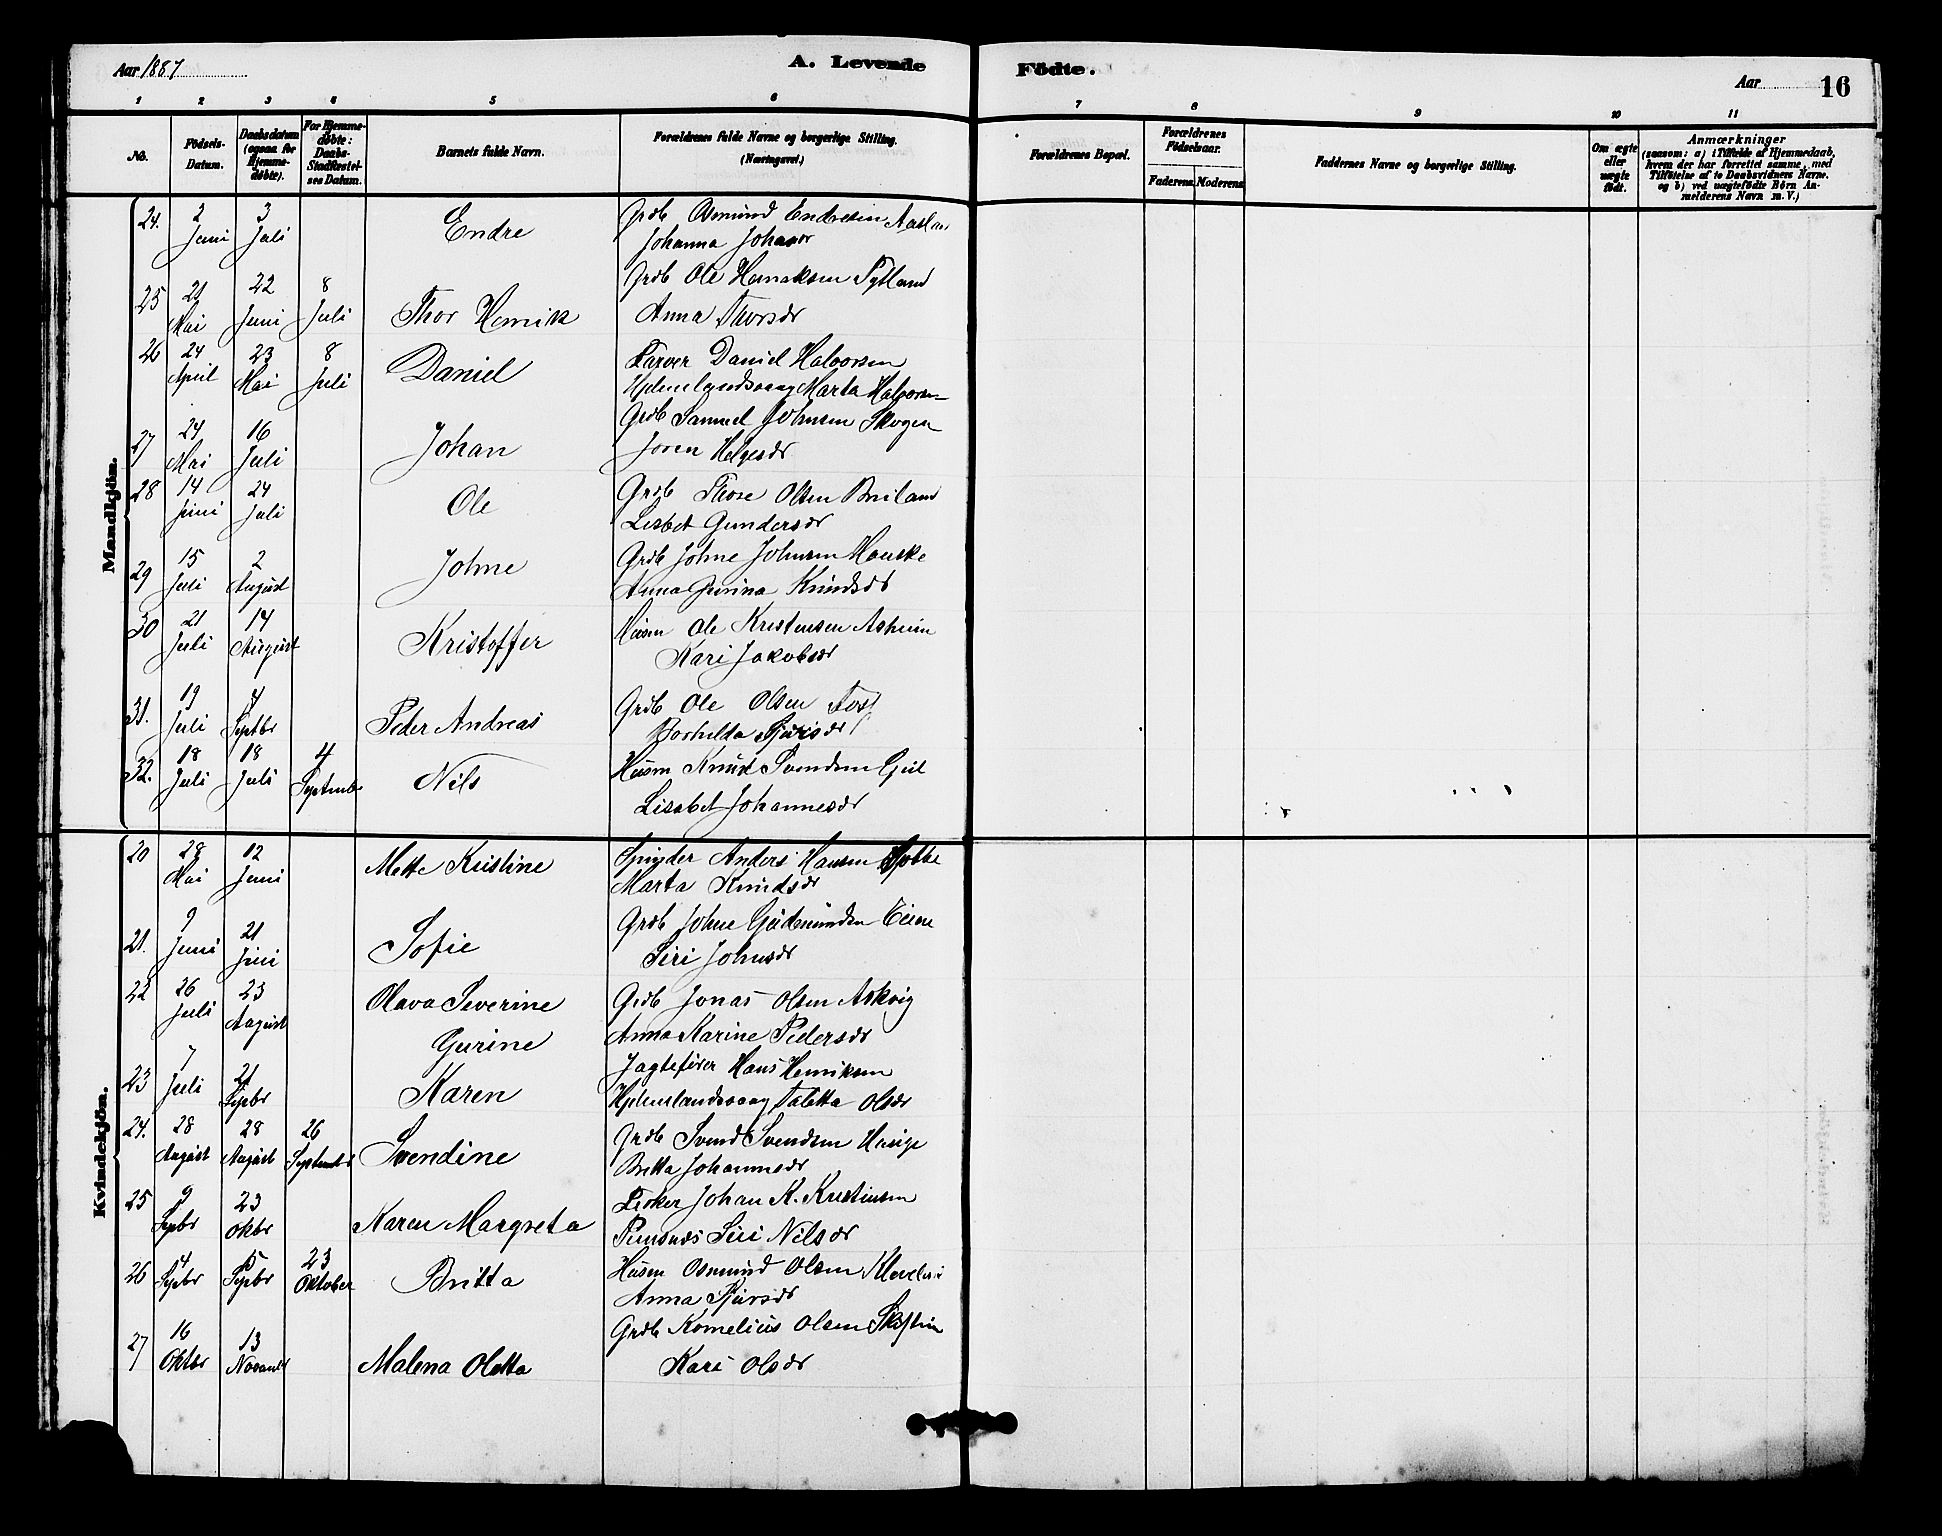 Aar 1887
A. Levende
Födte.
Aar
16
1 2 3 4 5 6 7 8 9 10 11
No.
Födsels-
Datum.
Daabsdatum
(ogsaa for
Hjemme-
döbte).
For Hjemme-
døbte:
Daabs-
Stadfæstel-
ses Datum.
Barnets fulde Navn.
Forældrenes fulde Navne og borgerlige Stilling.
(Næringsvei.)
Forældrenes Bopæl.
Forældrenes
Födselsaar.
Faderens. Moderens.
Faddernes Navne og borgerlige Stilling.
Om ægte
eller
uægte
født.
Anmærkninger
(saasom: a) i Tilfælde af Hjemmedaab,
hvem der har forrettet samme, med
Tilföielse af to Daabsvidners Navne.
og b) ved uægtefödte Börn An-
melderens Navn m. V.)
Mandkjön.
24. 2 Juni 3 Juli Endre
Grdb Osmund Endresen
Johanna Johansdr
25 21 Mai 22 Juni 8 Juli Thor Henrik
Grdb Ole Henriksen Tytland
Anna Thorsdr
26 24 April 23 Mai 8 Juli Daniel
Farver Daniel Halvorsen
Hjelmelandsvaag Marta Halvorsen
27 24 Mai 16 Juli Johan
Grdb Samuel Johnsen Skogen
Joren Helgesdr
28 14 Juni 24 Juli Ole
Grdb Those Olsen
Lisbet Gundersdr
29 15 Juli 2 August Johne
Grdb Johne Johnsen Hauske
Anna Gurina Knudsdr
30 21 Juli 14 August Kristoffer
Husm Ole Kristensen Asheim
Kari Jakobsdr
31. 19 Juli 4 Septbr Peder Andreas
Grdb Ole Olsen
Borhilda Sjursdr
32. 18 Juli 18 Juli 4 September Nils
Husm Knud Svendsen Geil
Lisabet Johannesdr
Kvindekjön.
20 28 Mai 12 Juni Mette Kristine
Anders Hansen
Marta Knudsdr
21. 9 Juni 21 Juni Sofie
Grdb Johne Gudmundsen Eiane
Siri Johnsdr
22 26 Juli 23 August Olava Severine
Gurine
Grdb Jonas Olsen Askvig
Anna Karine Pedersdr
23 7 Juli 21 Sepbr Karen
Jagtefører Hans Henriksen
Hjelmelandsvaag Taletta Olsdr
24. 28 August 28 August 26 September Svendine
Grdb Svend Svendsen Hauge
Britta Johannesdr
25 9 Sepbr 23 Oktbr Karen Margreta
Johan K. Kristensen
Siri Nilsdr
26 4 Sepbr 5 Sepbr 23 Oktober Britta
Husm Osmund Olsen
Anna Sjursdr
27 16 Oktbr 13 Novembr Malena Oletta
Grdb Kornelius Olsen Skiftun
Kari Olsdr